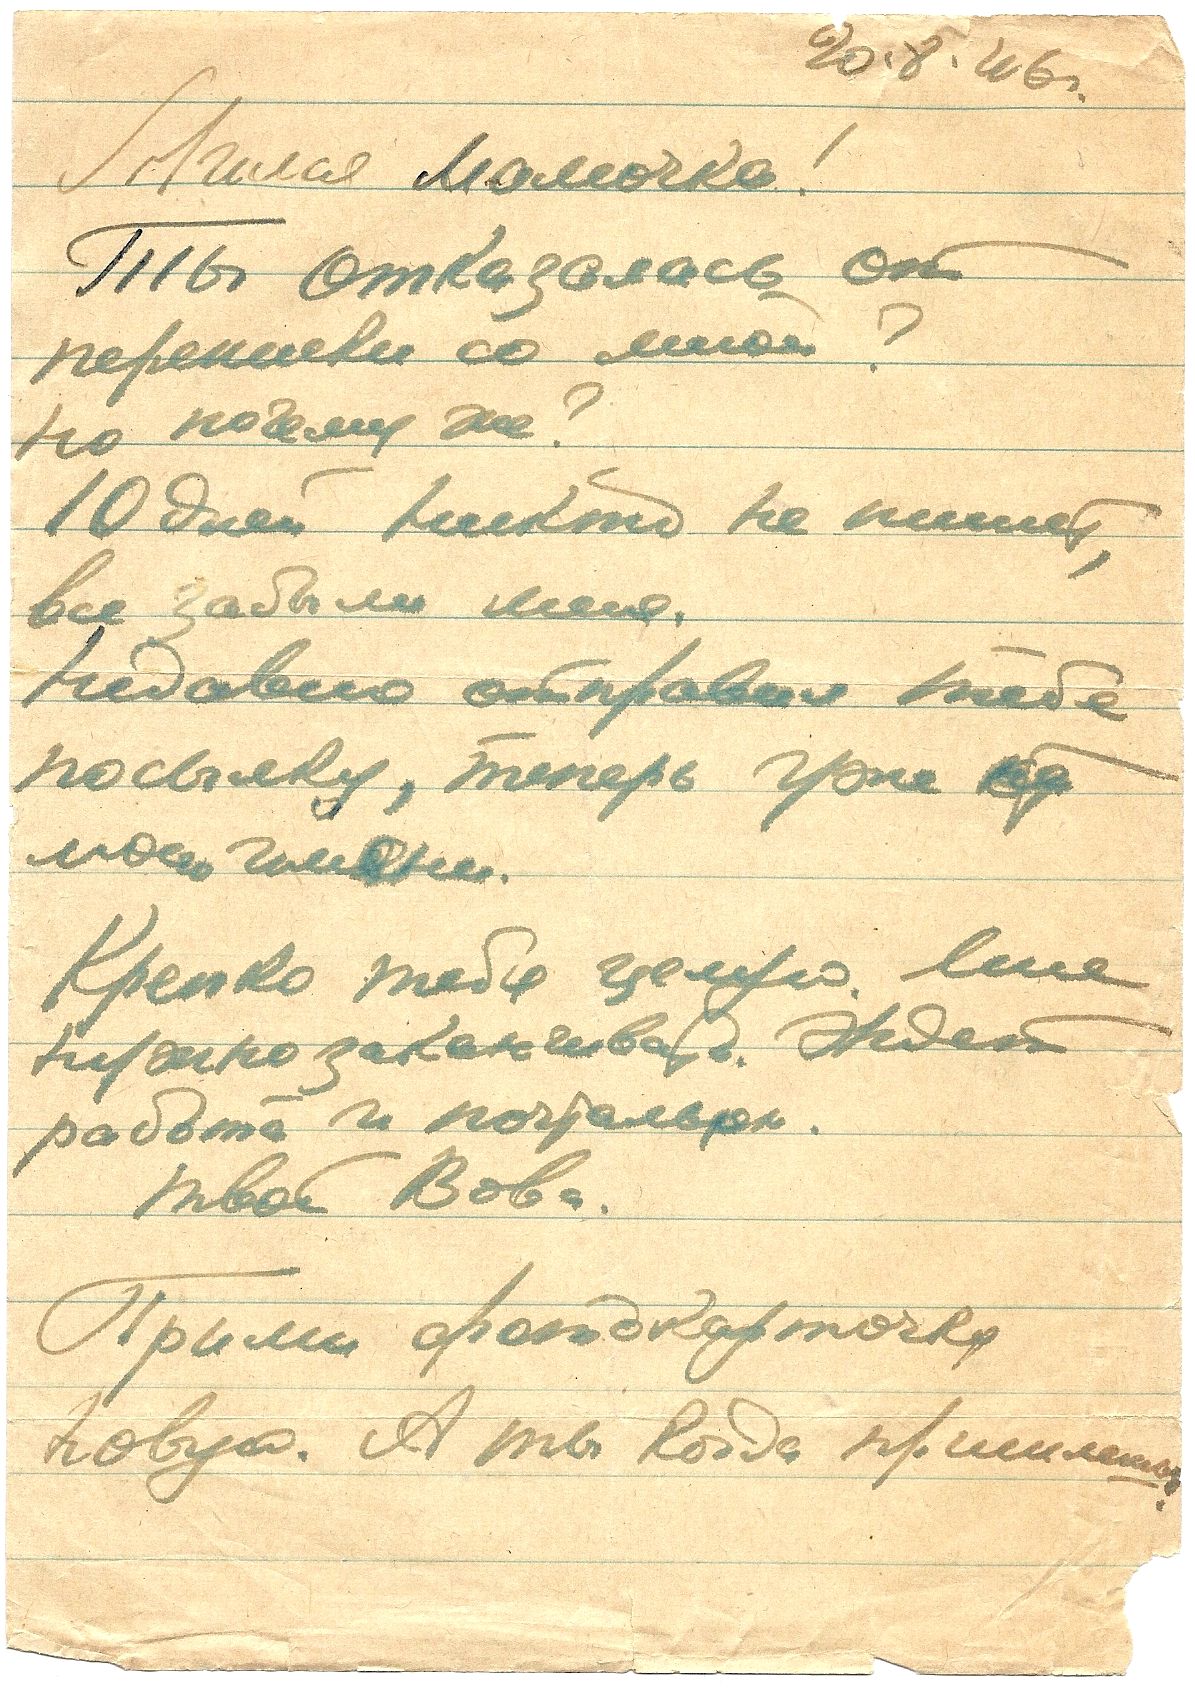 20.8.46г.
Милая Мамочка!
Ты отказалась от
переписки со мной?
но почему же?
10 дней никто не пишет,
все забыли меня.
Недавно отправил тебе
посылку, теперь уже
Крепко тебя целую. Мне
нужно заканчивать. Ждет
работа и почтальон.
твой Вова.
Прими фотокарточку
новую. А ты когда пришлешь?